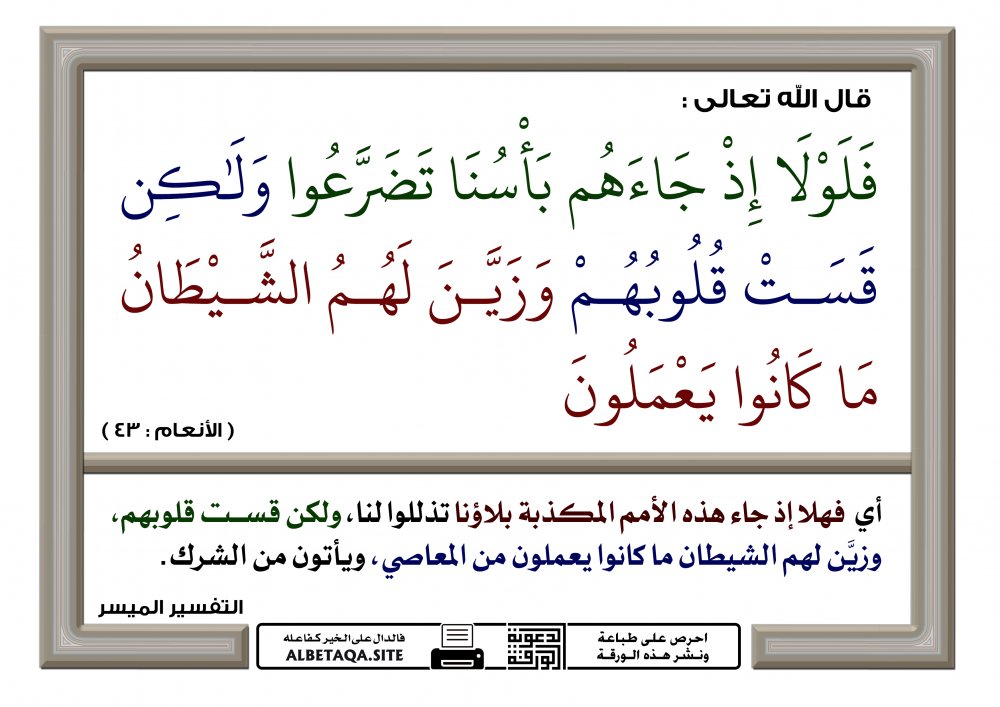 قال الله تعالى :
فَلَوْلَا إِذْ جَاءَهُم بَأْسُنَا تَضَرَّعُوا وَلَٰكِن
قَسَتْ قُلُوبُهُمْ وَزَيَّنَ لَهُمُ الشَّيْطَانُ
مَا كَانُوا يَعْمَلُونَ
( الأنعام : ٤٣ )
أي فهلا إذ جاء هذه الأمم المكذبة بلاؤنا تذللوا لنا، ولكن قست قلوبهم،
وزيَّن لهم الشيطان ما كانوا يعملون من المعاصي، ويأتون من الشرك.
التفسير الميسر
احرص على طباعة
ونشر هذه الورقة
الورقة
الدعوية
فالدال على الخير كفاعله
ALBETAQA.SITE